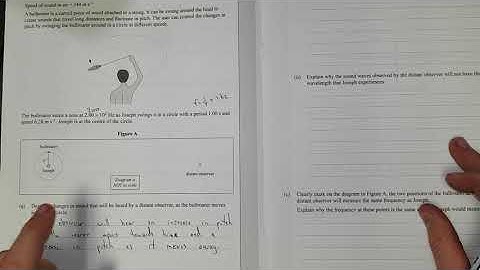 Speed of sound in air = 344 m s⁻¹
A bullroarer is a curved piece of wood attached to a string. It can be swung around the head to
create sounds that travel long distances and fluctuate in pitch. The user can control the changes in
pitch by swinging the bullroarer around in a circle at different speeds.
The bullroarer emits a tone at 2.00 × 10² Hz as Joseph swings it in a circle with a period 1.00 s and
speed 6.28 m s⁻¹. Joseph is at the centre of the circle.
Figure A
bullroarer
Joseph
Diagram is
NOT to scale
distant observer
(a) changes in sound that will be heard by a distant observer, as the bullroarer moves
circle.
observer will hear an increase in pitch
moves towards him and a
in pitch as it moves away.
(b) Explain why the sound waves observed by the distant observer will not have the
wavelength that Joseph experiences.
(c) Clearly mark on the diagram in Figure A, the two positions of the bullroarer
distant observer will measure the same frequency as Joseph.
Explain why the frequency at these points is the same would measure